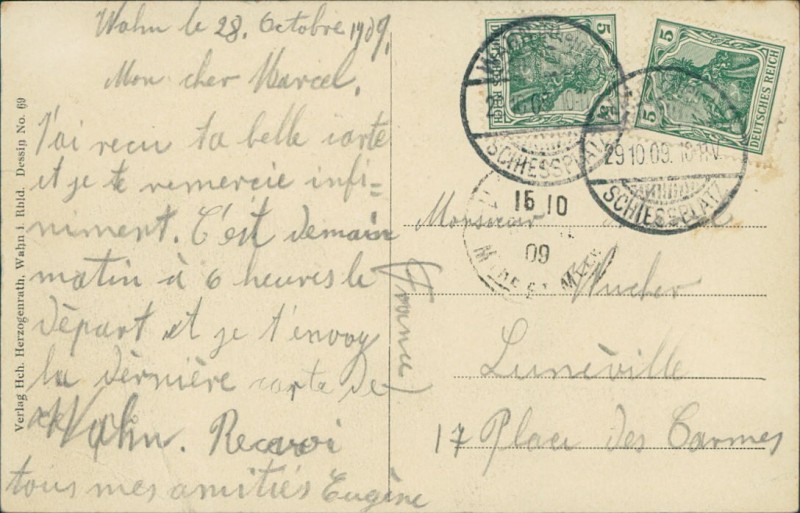 Wahn le 28. Octobre 1909.
Mon cher Marcel,
J'ai recu ta belle carte
et je te remercie infi=
niment. C'est demain
matin à 6 heures le
départ et je t'envoy
la dèrnière carte de
Wahn. Recevoi
tous mes amitiés Eugène
Verlag Hch. Herzogenrath, Wahn i. Rhld. Dessin No. 69
5 5
DEUTSCHES REICH
5 5
DEUTSCHES REICH
SCHIESSPLATZ
29.10.09. 10-11V.
SCHIESSPLATZ
16 10
09
Monsieur
Lunéville
17 Place des Carmes
France